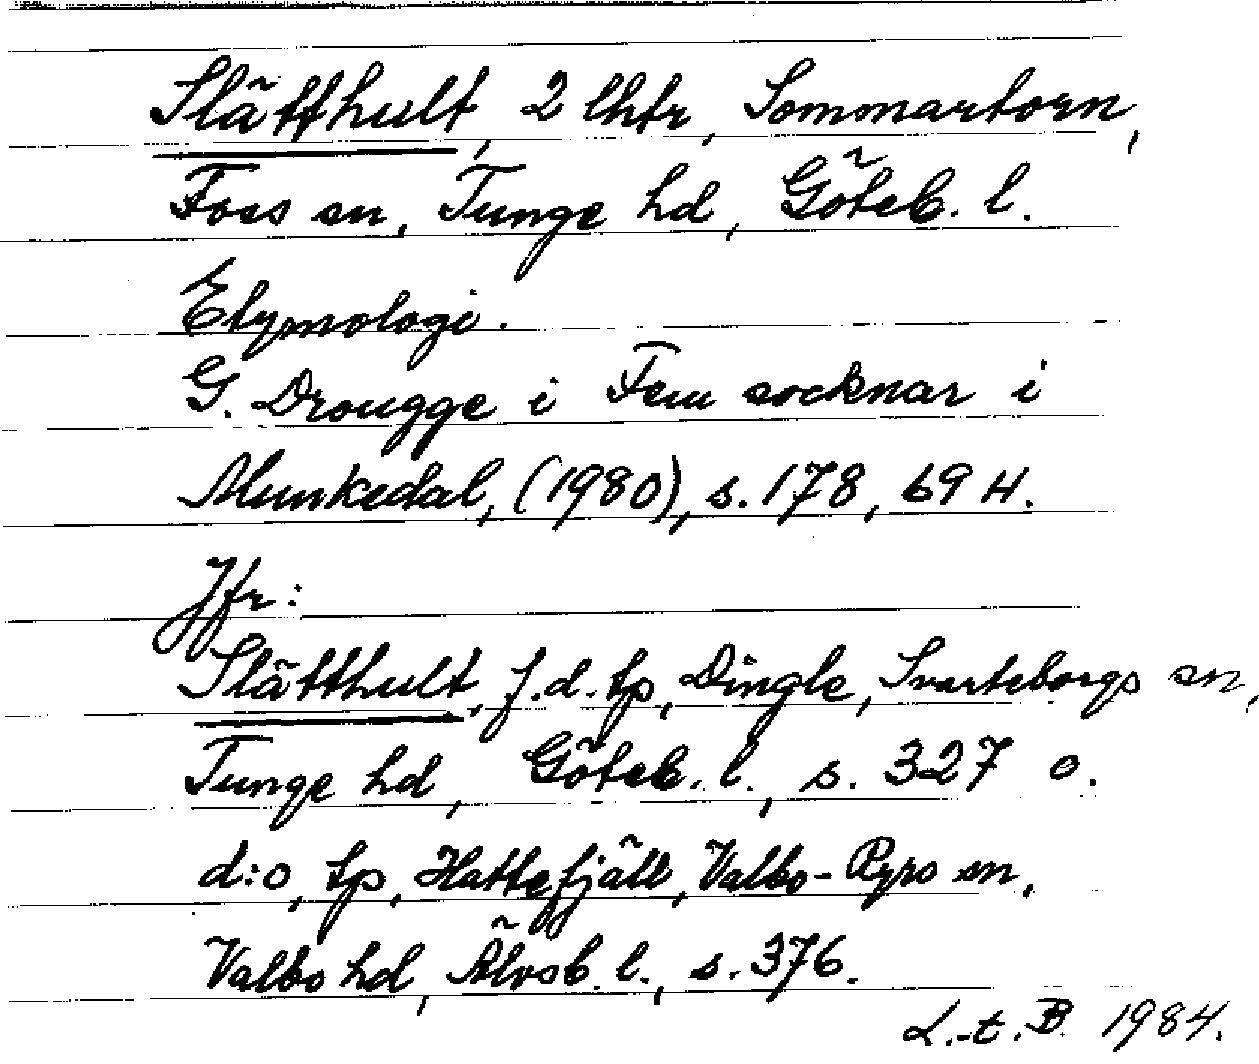 Slätthult, 2 lhtr, Sommartorn,
Foss sn, Tunge hd, Göteb. l.
Etymologi.
G. Drougge i Fem socknar i
Munkedal, (1980), s. 178, 69 H.
Jfr:
Slätthult, f.d. tp, Dingle, Svarteborgs sn,
Tunge hd, Göteb. l., s. 327 o.
d:o, tp, Hattefjäll, Valbo-Ryrs sn,
Valbo hd, Älvsb. l., s. 376.
L.-t. B. 1984.